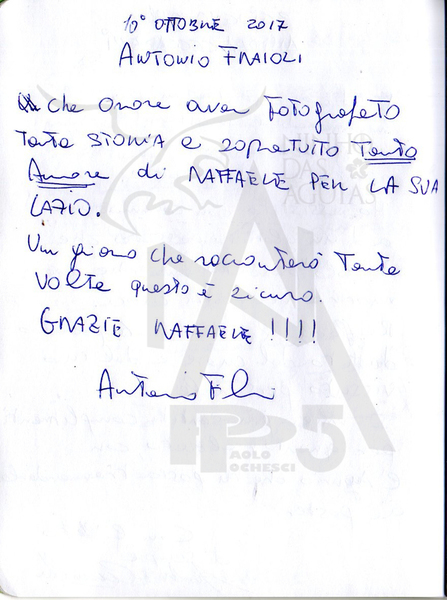 10° OTTOBRE 2017
ANTONIO FRAIOLI
Che onore aver FOTOgrafato
Tanta STORIA e sopratuito Tanto
Amore di RAFFAELE PER LA SUA
LAZIO.
Un giorno che racconterò Tante
Volte questo è sicuro.
GRAZIE RAFFAELE !!!!
Antonio
NINHO
DAS
AGUIAS
PP5
PAOLO
POCHESCI